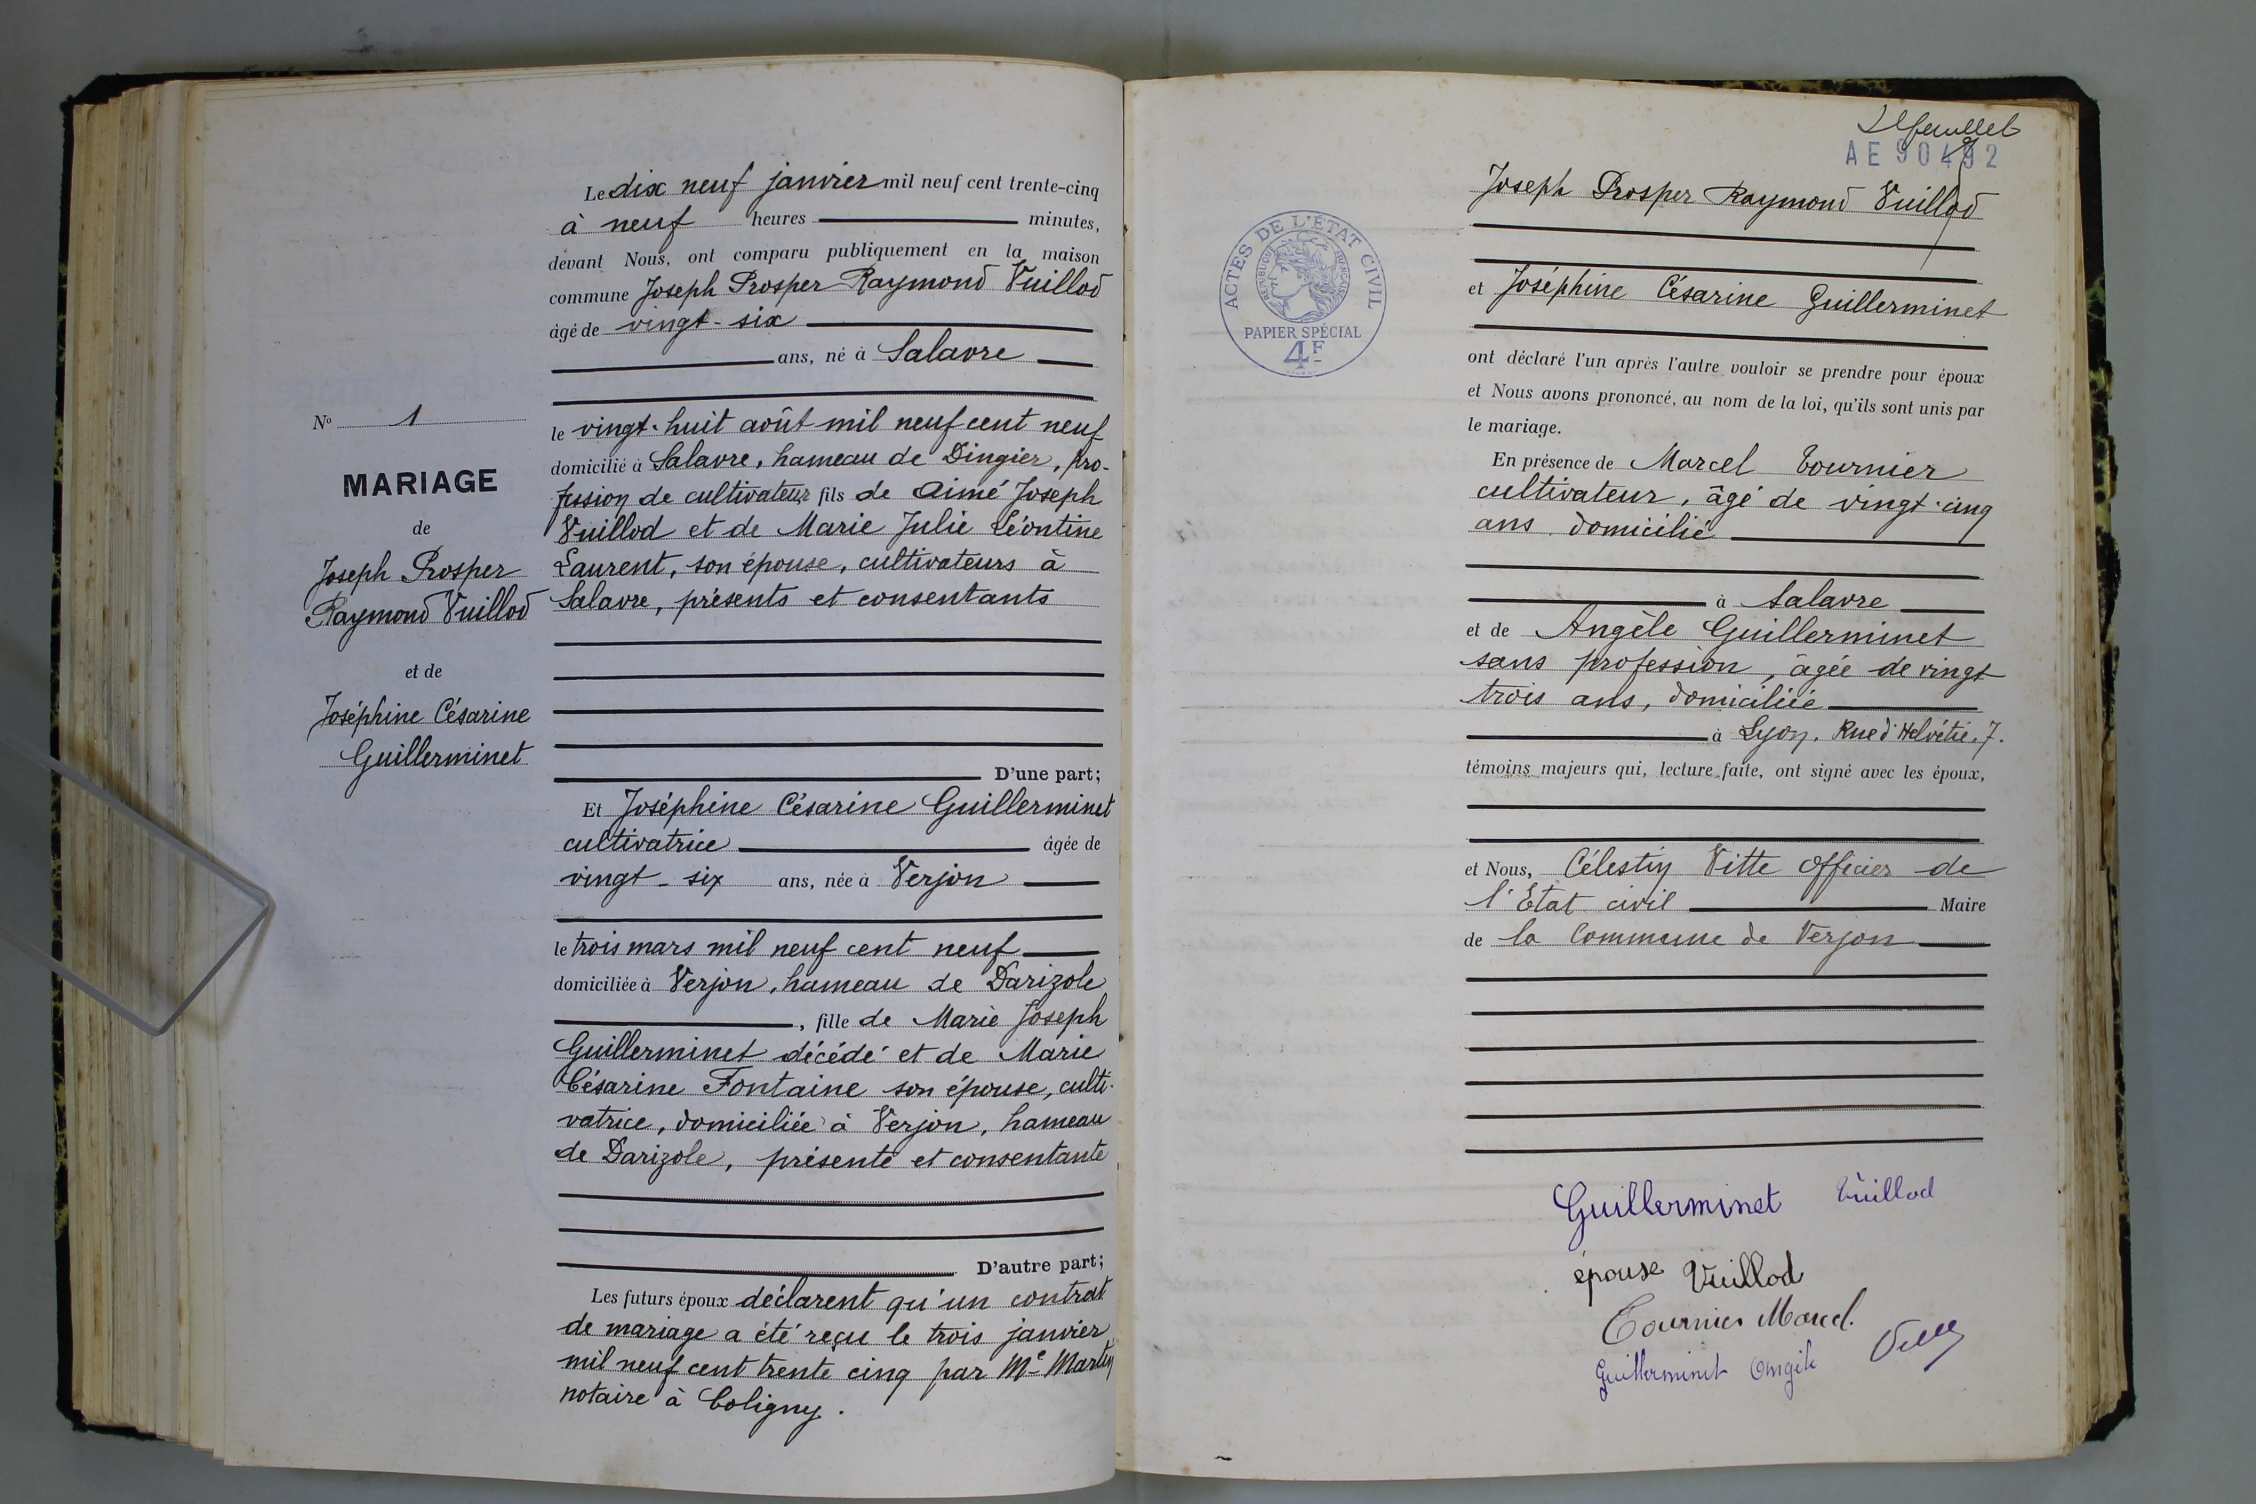 Le dix neuf janvier mil neuf cent trente-cinq
à neuf heures minutes,
devant Nous, ont comparu publiquement en la maison
commune Joseph Prosper Raymond Vuillod
âgé de vingt-six
ans, né à Salavre
le vingt-huit août mil neuf cent neuf
domicilié à Salavre, hameau de Dingier, pro-
fession de cultivateur fils de Aimé Joseph
Vuillod et de Marie Julie Léontine
Laurent, son épouse, cultivateurs à
Salavre, présents et consentants
D'une part;
Et Joséphine Césarine Guillerminet
cultivatrice âgée de
vingt-six ans, née à Verjon
le trois mars mil neuf cent neuf
domiciliée à Verjon, hameau de Darizole
, fille de Marie Joseph
Guillerminet décédé et de Marie
Césarine Fontaine son épouse, culti-
vatrice, domiciliée à Verjon, hameau
de Darizole, présente et consentante
D'autre part;
Les futurs époux déclarent qu'un contrat
de mariage a été reçu le trois janvier
mil neuf cent trente cinq par Me Martin
notaire à Coligny.
No 1
MARIAGE
de
Joseph Prosper
Raymond Vuillod
et de
Joséphine Césarine
Guillerminet
feuillet
AE 90492
ACTES DE L'ÉTAT CIVIL
RÉPUBLIQUE FRANÇAISE
PAPIER SPÉCIAL
4F
Joseph Prosper Raymond Vuillod
et Joséphine Césarine Guillerminet
ont déclaré l'un après l'autre vouloir se prendre pour époux
et Nous avons prononcé, au nom de la loi, qu'ils sont unis par
le mariage.
En présence de Marcel Tournier
cultivateur, âgé de vingt-cinq
ans domicilié
à Salavre
et de Angèle Guillerminet
sans profession, âgée de vingt
trois ans, domiciliée
à Lyon, Rue d'Helvétie, 7.
témoins majeurs qui, lecture faite, ont signé avec les époux,
et Nous, Célestin Vitte Officier de
l'Etat civil Maire
de la Commune de Verjon
Guillerminet Vuillod
épouse Vuillod
Tournier Marcel.
Guillerminet Angèle